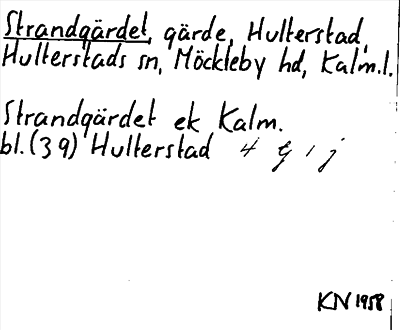 Strandgärdet, gärde, Hulterstad,
Hulterstads sn, Möckleby hd, Kalm.l.
Strandgärdet ek Kalm.
bl. (39) Hulterstad 4 g 1 j
KN 1958